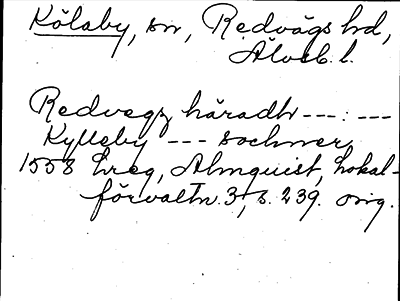 Kölaby, sn, Redvägs hd,
Älvsb. l.
Redvegz häradh ---:---
Kylleby --- sochner
1558 Lreg, Almquist, Lokal-
förvaltn. 3, s. 239. orig.